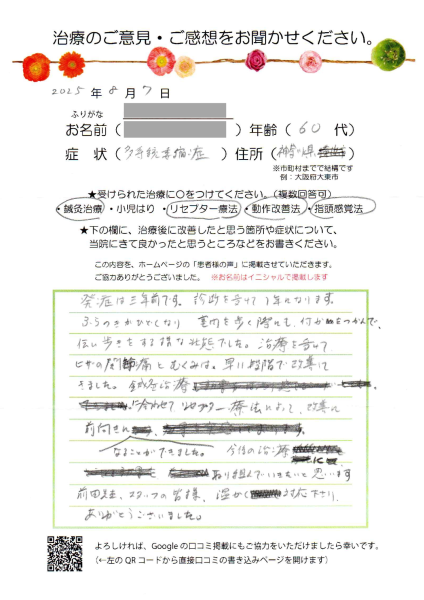 治療のご意見・ご感想をお聞かせください。
2025年8月7日
ふりがな
お名前（　　　）年齢（60代）
症状（　　　症）住所（神奈川県　　　）
※市町村までで結構です
例：大阪府大東市
★受けられた治療に○をつけてください。（複数回答可）
・鍼灸治療・小児はり・レセプター療法・動作改善法・指頭感覚法
★下の欄に、治療後に改善したと思う箇所や症状について、
当院にきて良かったと思うところなどをお書きください。
この内容を、ホームページの「患者様の声」に掲載させていただきます。
ご協力ありがとうございました。 ※お名前はイニシャルで掲載します
発症は三年前です。診断を受けて1年になります。
ふらつきがひどくなり 室内を歩く際にも、何かをつかんで、
伝い歩きをする様な状態でした。治療を受けて
ヒザの関節痛とむくみは、早い段階で改善に
きました。鍼灸治療
に合わせてレセプター療法によって、改善に
前向きに
なることができました。今後の治療
に
取り組んでいきたいと思います
前田先生、スタッフの皆様、温かく対応下さり
ありがとうございました。
よろしければ、Googleの口コミ掲載にもご協力をいただけましたら幸いです。
（←左のQRコードから直接口コミの書き込みページを開けます）